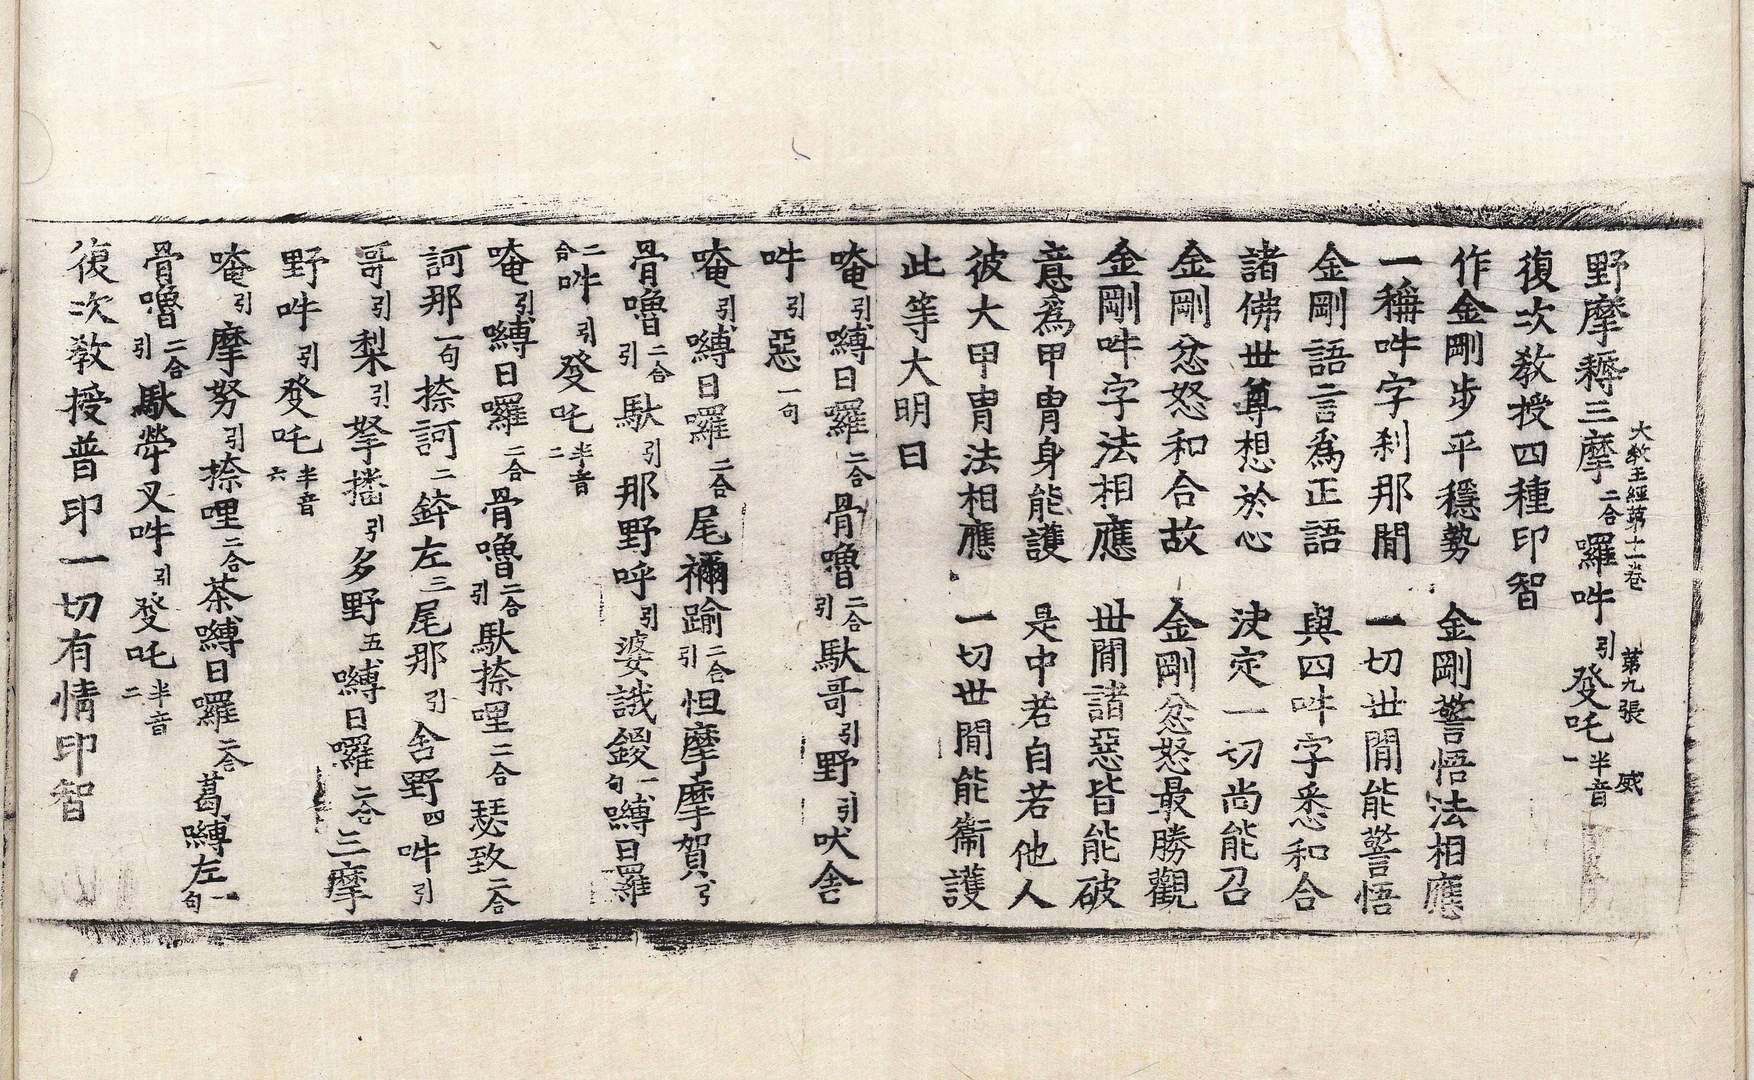 大教王經第十一卷 第九張 威
野摩耨三摩二合囉吽引發吒半音一
復次教授四種印智
作金剛步平穩勢 金剛警悟法相應
一稱吽字剎那閒 一切世閒能警悟
金剛語言爲正語 與四吽字悉和合
諸佛世尊想於心 決定一切尚能召
金剛忿怒和合故 金剛忿怒最勝觀
金剛吽字法相應 世閒諸惡皆能破
意爲甲冑身能護 是中若自若他人
彼大甲冑法相應 一切世閒能衞護
此等大明曰
唵引嚩日囉二合骨嚕二合引馱哥引野引吠舍
吽引惡一句
唵引嚩日囉二合尾禰踰二合引怛摩摩賀引
骨嚕二合引馱引那野呼引婆誐鍐一句嚩日羅
二合吽引發吒半音二
唵引嚩日囉二合骨嚕二合引馱捺哩二合瑟致二合
訶那一句捺訶二鉢左三尾那引舍野四吽引
哥引梨引拏播引多野五嚩日囉二合三摩
野吽引發吒半音六
唵引摩努引捺哩二合茶嚩日囉二合葛嚩左一句
骨嚕二合引馱犖叉吽引發吒半音二
復次教授普印一切有情印智